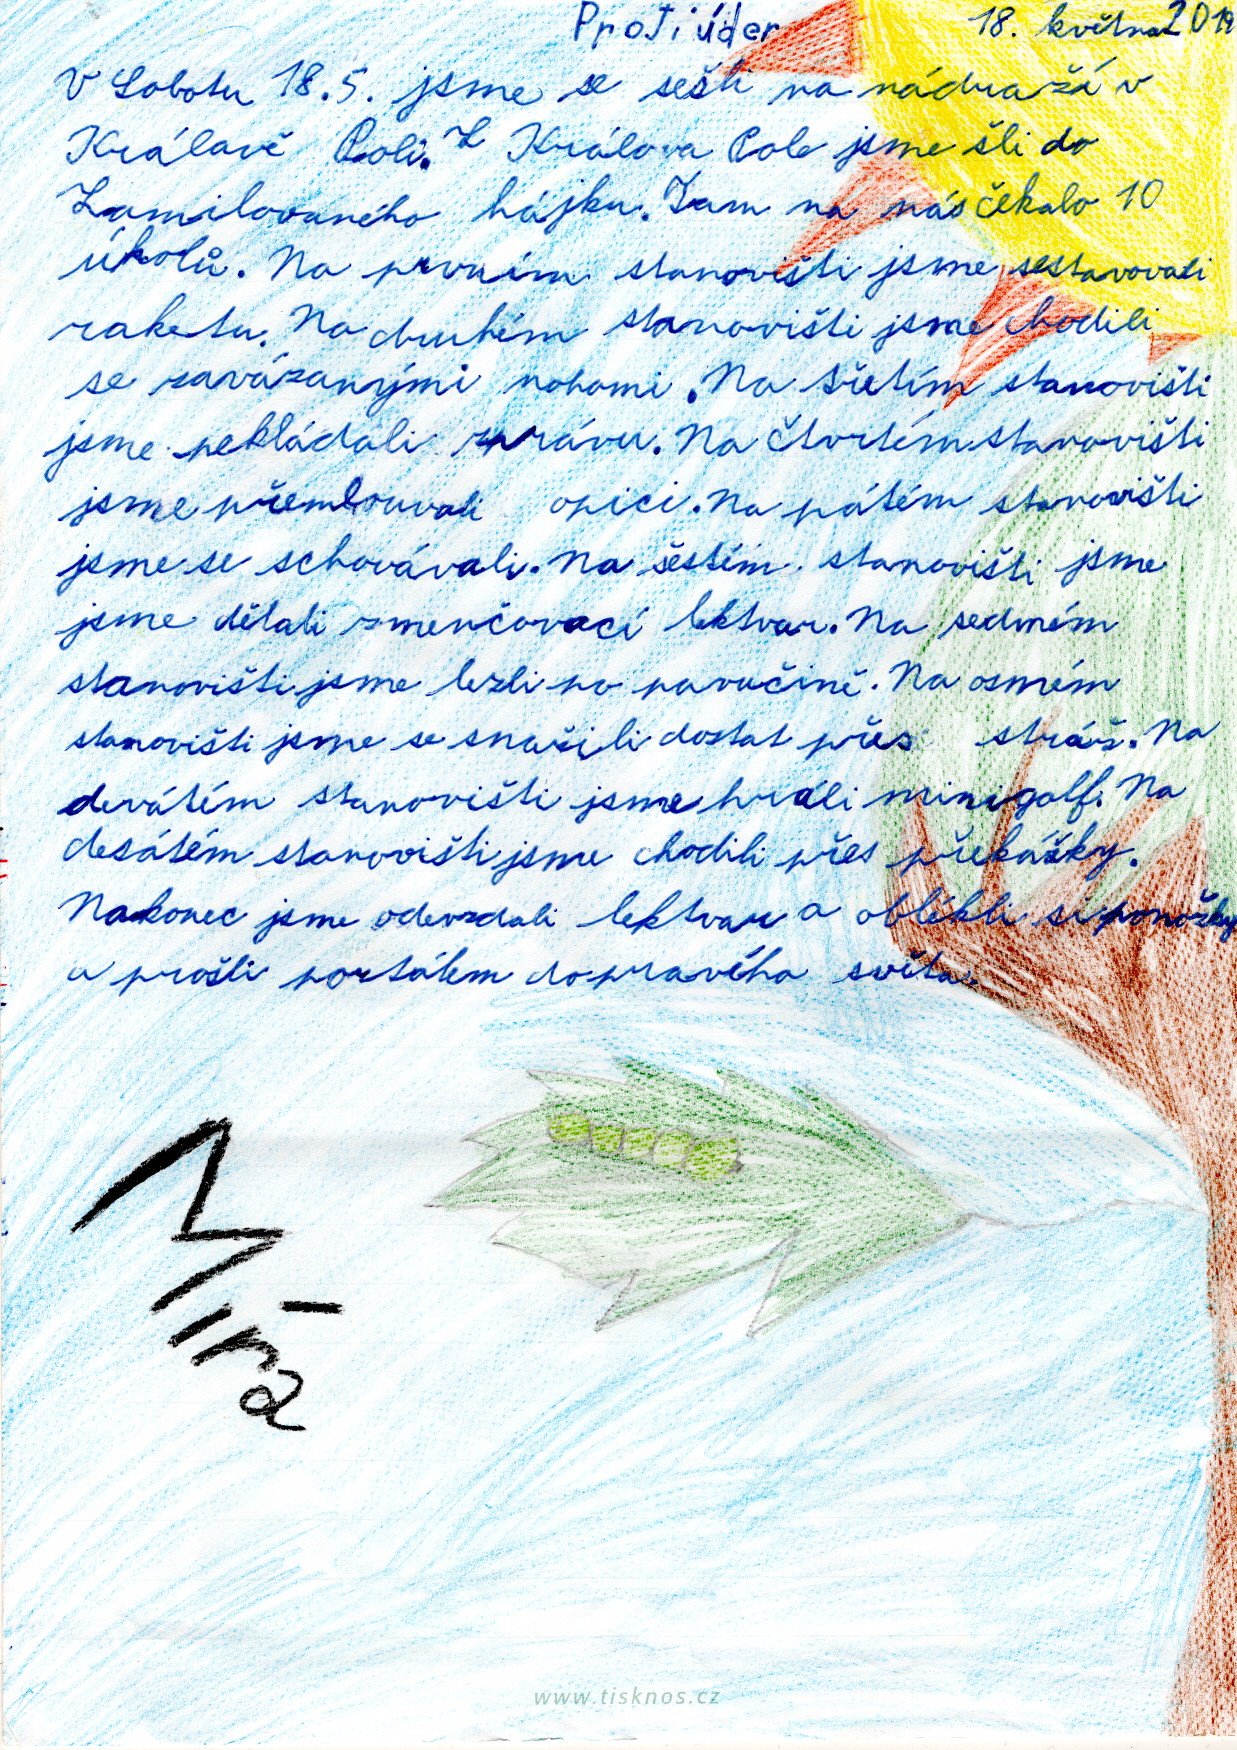 Protiúder 18. května 2019
V Sobotu 18.5. jsme se sešli na nádraží v
Králově Poli. Z Králova Pole jsme šli do
Zamilovaného hájku. Tam na nás čekalo 10
úkolů. Na prvním stanovišti jsme sestavovali
raketu. Na druhém stanovišti jsme chodili
se zavázanými nohami. Na třetím stanovišti
jsme pekládali zprávu. Na čtvrtém stanovišti
jsme přemlouvali opici. Na pátém stanovišti
jsme se schovávali. Na šestém stanovišti jsme
jsme dělali zmenčovací lektvar. Na sedmém
stanovišti jsme lezli po pavučině. Na osmém
stanovišti jsme se snažili dostat přes stráž. Na
devátém stanovišti jsme hráli minigolf. Na
desátém stanovišti jsme chodili přes překážky.
Nakonec jsme odevzdali lektvar a oblékli si ponožky
a prošli portálem do pravého světa.
Míra
www.tisknos.cz